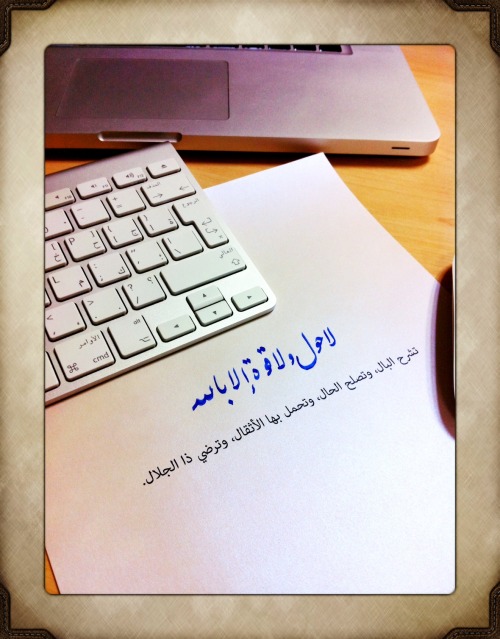 لا حول ولا قوة إلا بالله
تشرح البال، وتصلح الحال، وتحمل بها الأثقال، وترضي ذا الجلال.
الأوامر
cmd